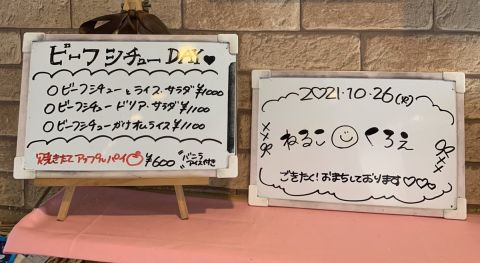 ビーフシチューDAY♥
○ビーフシチューとライス・サラダ ¥1000
○ビーフシチュードリア・サラダ ¥1100
○ビーフシチューがけオムライス ¥1100
焼きたてアップルパイ ¥600 バニラアイス付き
2021・10・26(火)
ねるこ くろえ
ごきたく!おまちしております♡♡♡